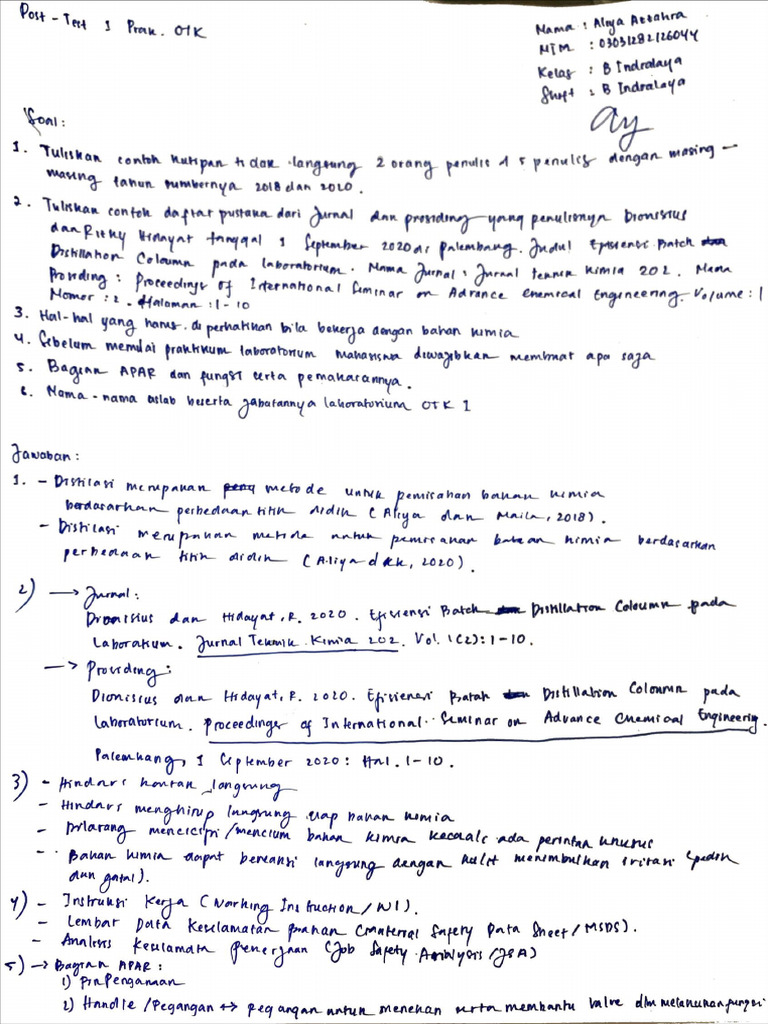 Post-Test 1 Prak. OTK
Nama : Aliya Azzahra
NIM : 03031282126044
Kelas : B Indralaya
Shift : B Indralaya
Ay
Soal :
1. Tuliskan contoh kutipan tidak langsung 2 orang penulis & 5 penulis dengan masing-
masing tahun sumbernya 2018 dan 2020.
2. Tuliskan contoh daftar pustaka dari Jurnal dan prosiding yang penulisnya Dionisius
dan Rizky Hidayat tanggal 1 September 2020 di Palembang. Judul Efisiensi Batch
Distillation Coloumn pada laboratorium. Nama Jurnal : Jurnal teknik kimia 202. Nama
Prosiding : Proceedings of International Seminar on Advance Chemical Engineering. Volume : 1
Nomor : 2. Halaman : 1-10
3. Hal-hal yang harus diperhatikan bila bekerja dengan bahan kimia
4. Sebelum memulai praktikum laboratorium mahasiswa diwajibkan membuat apa saja
5. Bagian APAR dan fungsi serta pemakaiannya.
6. Nama-nama aslab beserta jabatannya laboratorium OTK 1
Jawaban :
1. - Distilasi merupakan metode untuk pemisahan bahan kimia
berdasarkan perbedaan titik didih (Aliya dan Naila, 2018).
- Distilasi merupakan metode untuk pemisahan bahan kimia berdasarkan
perbedaan titik didih (Aliya dkk, 2020).
2) → Jurnal :
Dionisius dan Hidayat, R. 2020. Efisiensi Batch Distillation Coloumn pada
Laboratium. Jurnal Teknik Kimia 202. Vol. 1(2): 1-10.
→ Prosiding :
Dionisius dan Hidayat, R. 2020. Efisiensi Batch Distillation Coloumn pada
Laboratorium. Proceedings of International Seminar on Advance Chemical Engineering.
Palembang, 1 September 2020: Hal. 1-10.
3) - Hindari kontak langsung
- Hindari menghirup langsung uap bahan kimia
- Dilarang mencicipi/mencium bahan kimia kecuali ada perintah khusus
- Bahan kimia dapat bereaksi langsung dengan kulit menimbulkan iritasi (pedih
dan gatal).
4) - Instruksi Kerja (Working Instruction/WI).
- Lembar Data Keselamatan Bahan (Material Safety Data Sheet/MSDS).
- Analisis Keselamata Pekerjaan (Job Safety Analysis/JSA)
5) → Bagian APAR :
1) Pin Pengaman
2) Handle/Pegangan ↔ pegangan untuk menekan serta membantu valve dlm melakukan fungsi